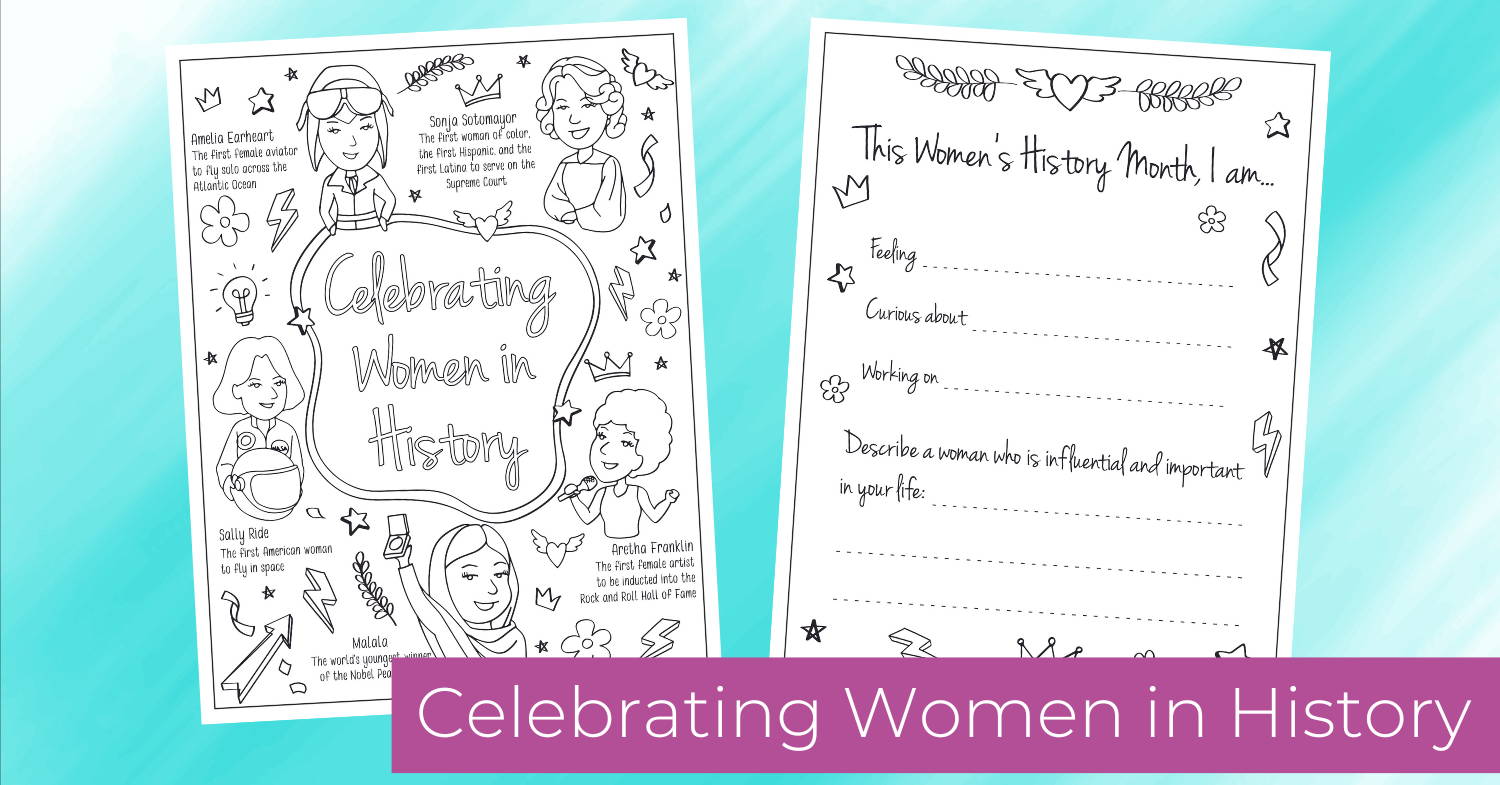 Amelia Earheart
The first female aviator
to fly solo across the
Atlantic Ocean
Sonja Sotomayor
The first woman of color,
the first Hispanic, and the
first Latina to serve on the
Supreme Court
Celebrating
Women in
History
NASA
Sally Ride
The first American woman
to fly in space
Aretha Franklin
The first female artist
to be inducted into the
Rock and Roll Hall of Fame
Malala
The world's youngest winner
of the Nobel
This Women's History Month, I am...
Feeling
Curious about
Working on
Describe a woman who is influential and important
in your life:
Celebrating Women in History